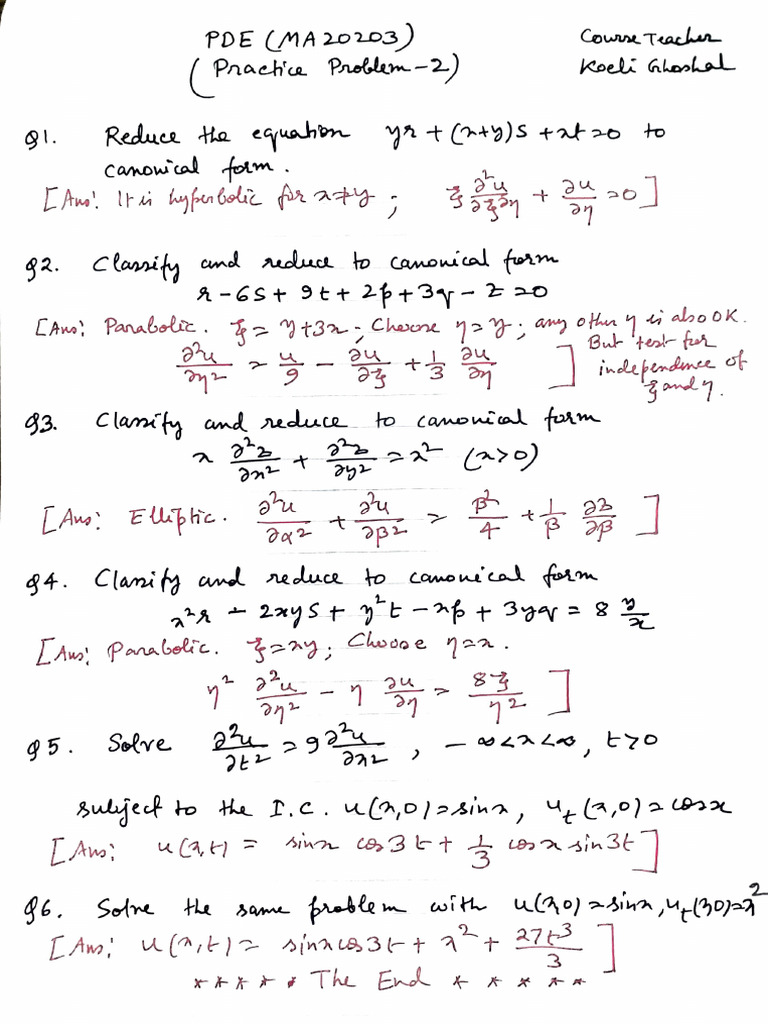 PDE (MA20203)
Course Teacher
(Practice Problem-2)
Koeli Ghoshal
Q1. Reduce the equation yr + (x+y)s + xt = 0 to
canonical form.
[Ans: It is hyperbolic for x≠y ; ξ ∂²u/∂ξ∂η + ∂u/∂η = 0]
Q2. Classify and reduce to canonical form
r - 6s + 9t + 2p + 3q - z = 0
[Ans: Parabolic. ξ = y+3x ; Choose η = y ; any other η is also OK.
But test for independence of ξ and η.
∂²u/∂η² = u/9 - ∂u/∂ξ + 1/3 ∂u/∂η ]
Q3. Classify and reduce to canonical form
x ∂²z/∂x² + ∂²z/∂y² = x² (x>0)
[Ans: Elliptic. ∂²u/∂α² + ∂²u/∂β² = β²/4 + 1/β ∂z/∂β ]
Q4. Classify and reduce to canonical form
x²r - 2xys + y²t - xp + 3yq = 8 y/x
[Ans: Parabolic. ξ = xy ; Choose η = x.
η² ∂²u/∂η² - η ∂u/∂η = 8ξ/η² ]
Q5. Solve ∂²u/∂t² = 9 ∂²u/∂x² , -∞<x<∞, t>0
subject to the I.C. u(x,0) = sinx, u_t(x,0) = cosx
[Ans: u(x,t) = sinx cos3t + 1/3 cosx sin3t]
Q6. Solve the same problem with u(x,0) = sinx, u_t(x,0) = x²
[Ans: u(x,t) = sinx cos3t + x² + 27t³/3 ]
* * * * * The End * * * * *